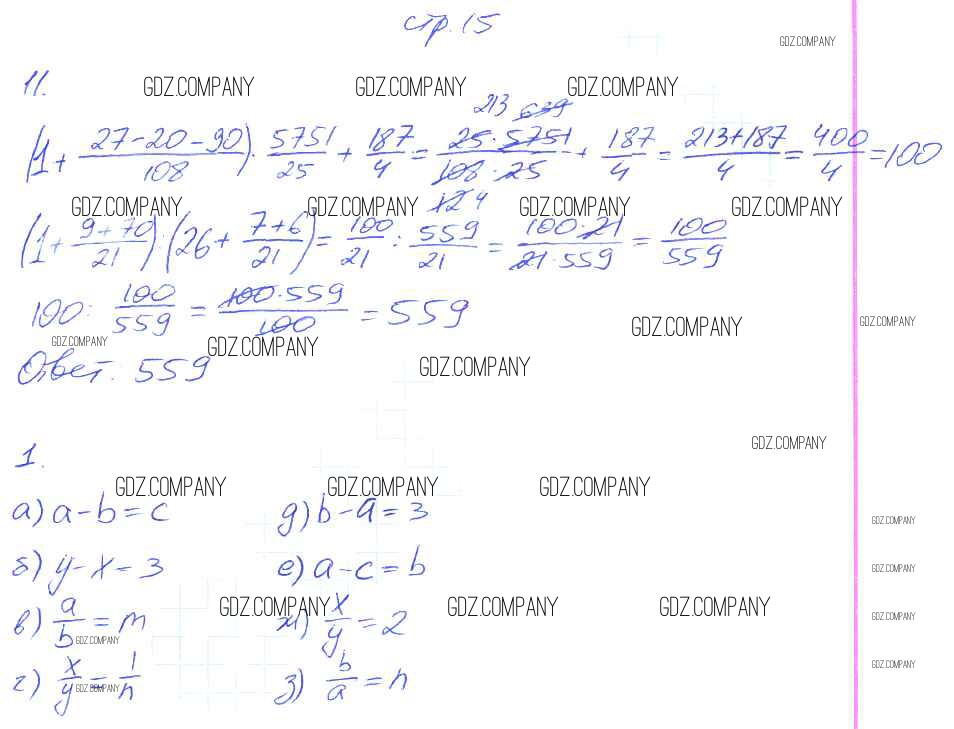 стр. 15
GDZ.COMPANY
11. GDZ.COMPANY GDZ.COMPANY GDZ.COMPANY
213 639
(1 + (27-20-90)/108) · 5751/25 + 187/4 = (25·5751)/(108·25) + 187/4 = (213+187)/4 = 400/4 = 100
12 4
GDZ.COMPANY GDZ.COMPANY GDZ.COMPANY GDZ.COMPANY
(1 + (9+70)/21) : (26 + (7+6)/21) = 100/21 : 559/21 = (100·21)/(21·559) = 100/559
100 : 100/559 = (100·559)/100 = 559
GDZ.COMPANY GDZ.COMPANY
GDZ.COMPANY GDZ.COMPANY
GDZ.COMPANY
Ответ: 559
GDZ.COMPANY
1.
GDZ.COMPANY GDZ.COMPANY GDZ.COMPANY
а) a-b=c д) b-a=3
GDZ.COMPANY
б) y-x=3 е) a-c=b
GDZ.COMPANY
GDZ.COMPANY GDZ.COMPANY GDZ.COMPANY
в) a/b=m ж) x/y=2
GDZ.COMPANY
GDZ.COMPANY
г) x/y=1/n з) b/a=n
GDZ.COMPANY
GDZ.COMPANY